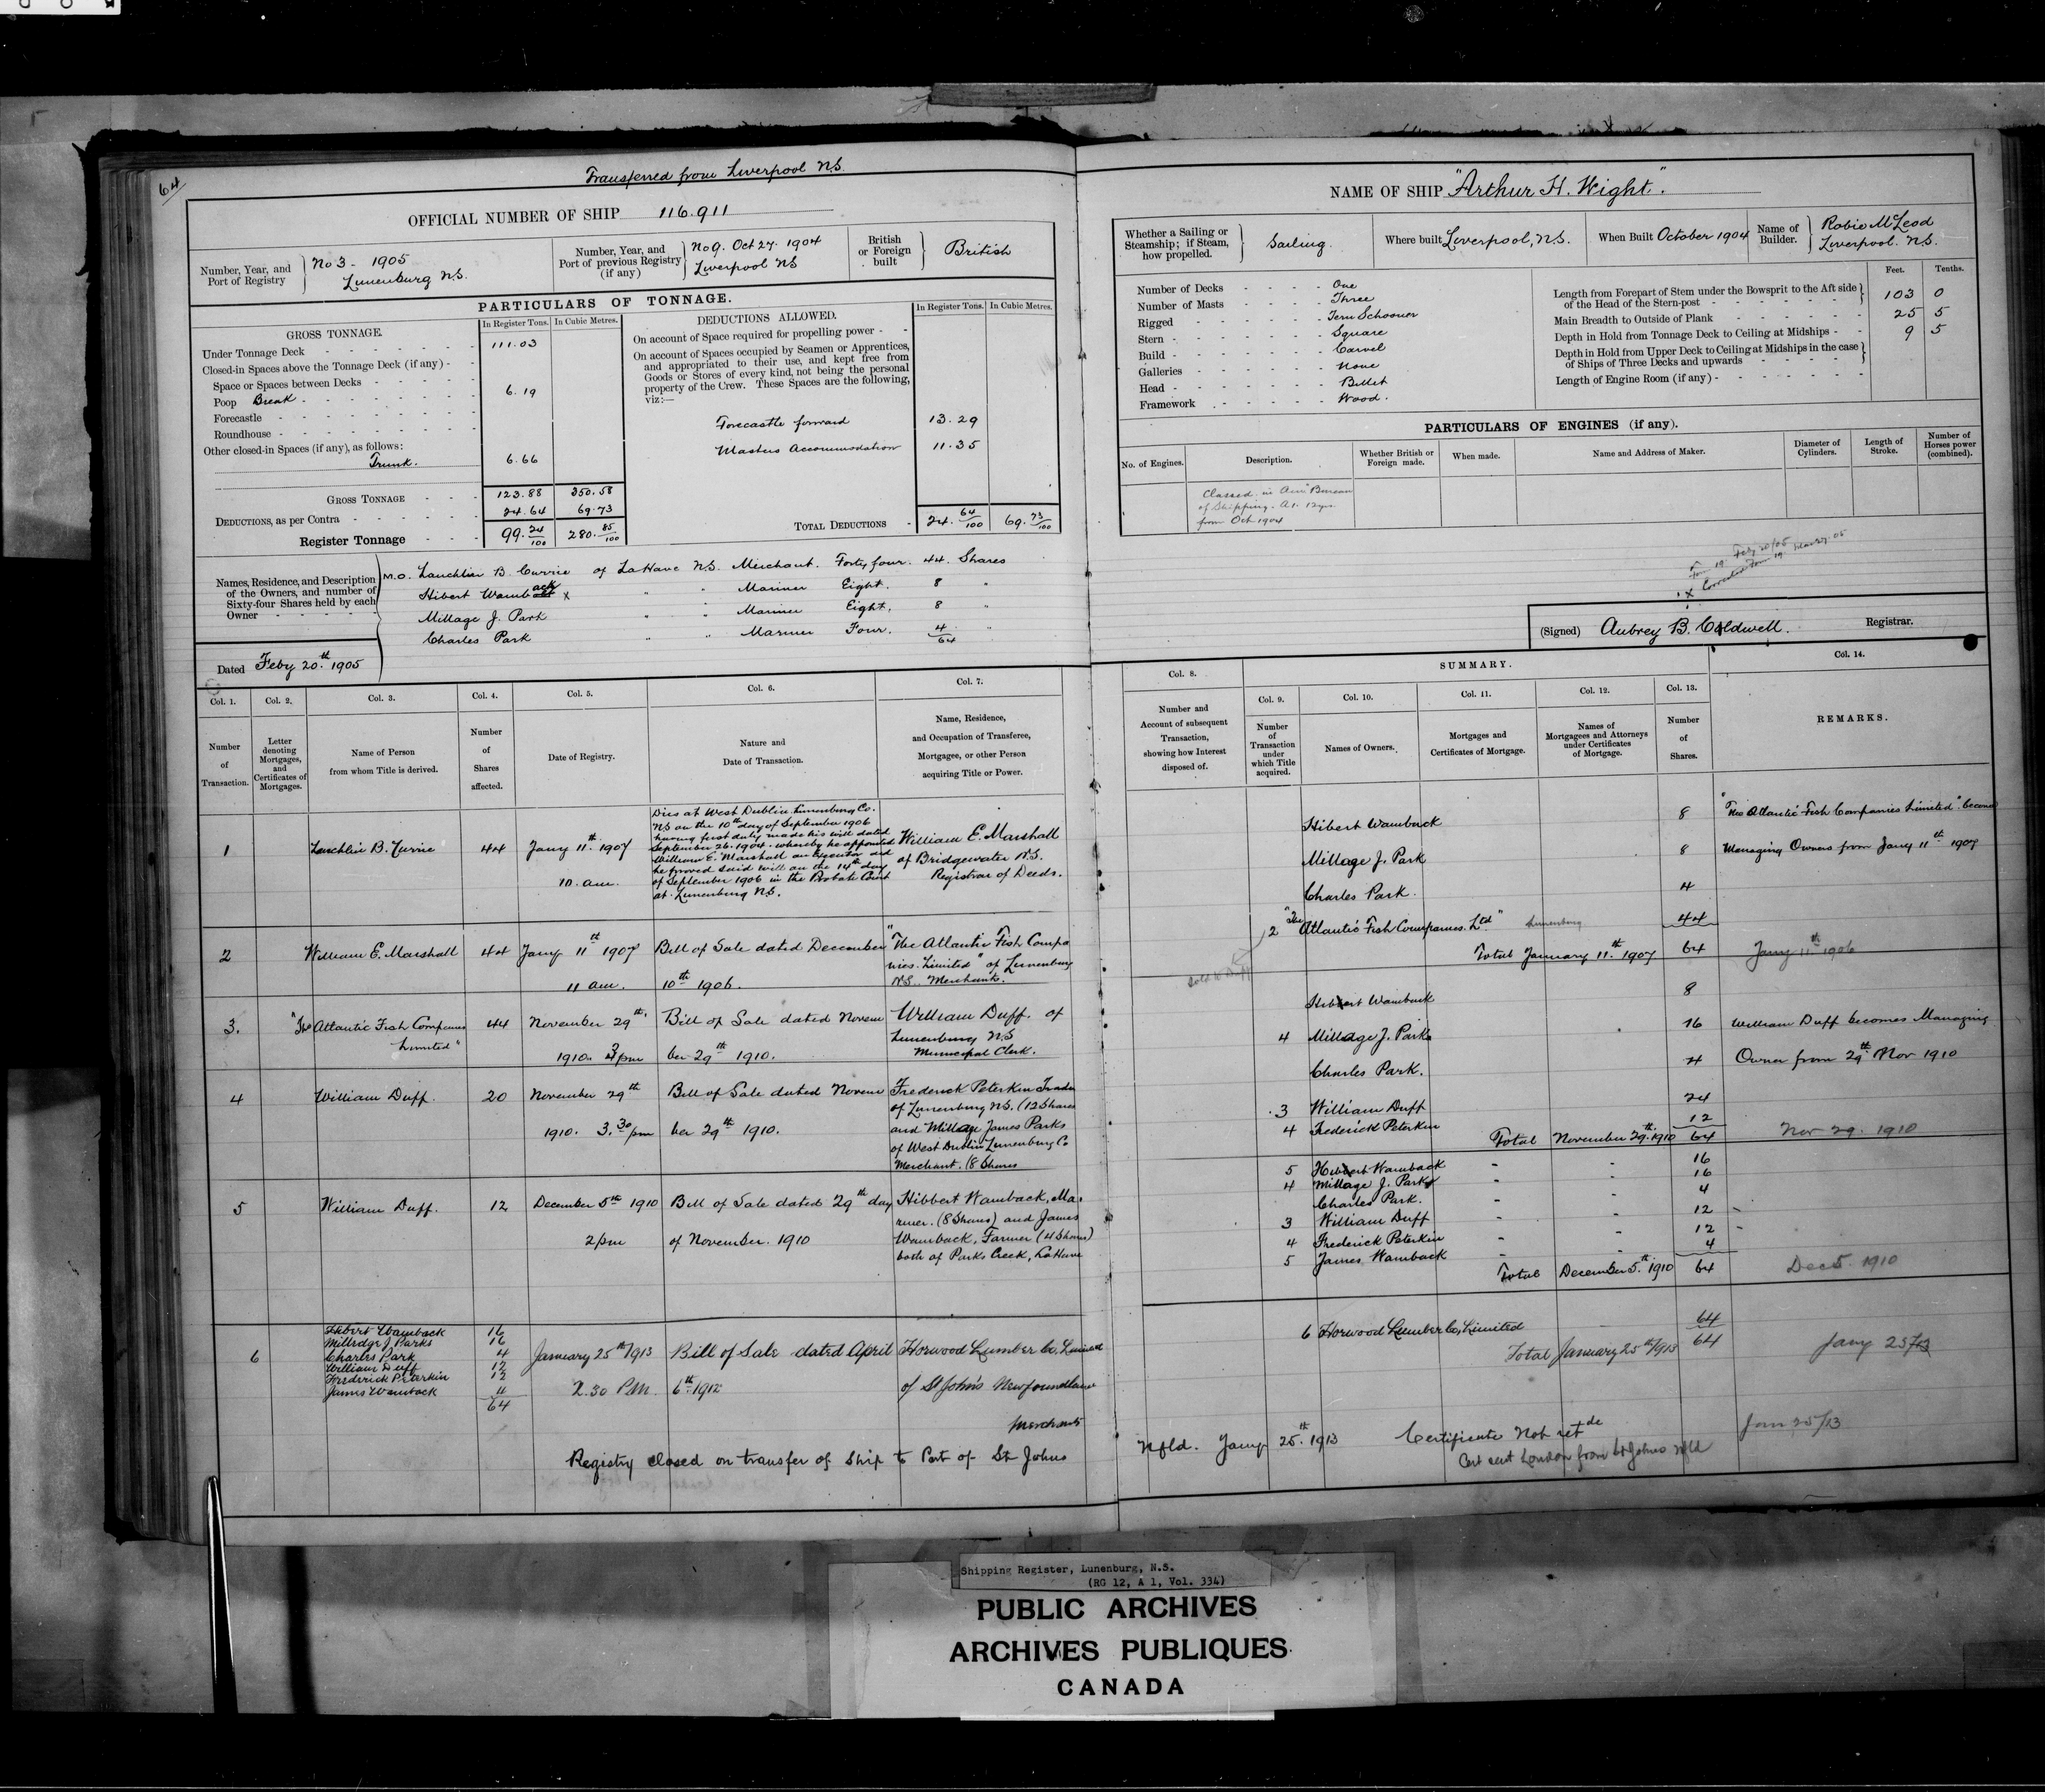 64
Transferred from Liverpool N.S.
OFFICIAL NUMBER OF SHIP 116.911
Number, Year, and Port of Registry
No 3 - 1905
Lunenburg N.S.
Number, Year, and Port of previous Registry (if any)
No 9. Oct 27. 1904
Liverpool NS
British or Foreign built
British
PARTICULARS OF TONNAGE.
GROSS TONNAGE.
In Register Tons. In Cubic Metres.
Under Tonnage Deck 111.03
Closed-in Spaces above the Tonnage Deck (if any)
Space or Spaces between Decks
Poop Break 6.19
Forecastle
Roundhouse
Other closed-in Spaces (if any), as follows:
Trunk. 6.66
GROSS TONNAGE 123.88 350.58
DEDUCTIONS, as per Contra 24.64 69.73
Register Tonnage 99.24/100 280.85/100
DEDUCTIONS ALLOWED.
In Register Tons. In Cubic Metres.
On account of Space required for propelling power
On account of Spaces occupied by Seamen or Apprentices,
and appropriated to their use, and kept free from
Goods or Stores of every kind, not being the personal
property of the Crew. These Spaces are the following,
viz:—
Forecastle forward 13.29
Masters Accommodation 11.35
TOTAL DEDUCTIONS 24.64/100 69.73/100
Names, Residence, and Description
of the Owners, and number of
Sixty-four Shares held by each
Owner
M.O. Lauchlin B. Currie of LaHave N.S. Merchant. Forty four. 44. Shares
Hibert Wamback x " " Mariner Eight. 8 "
Millage J. Park " " Mariner Eight. 8 "
Charles Park " " Mariner Four. 4 "
64
Dated Feby 20th 1905
NAME OF SHIP "Arthur H. Wight".
Whether a Sailing or Steamship; if Steam, how propelled.
Sailing.
Where built Liverpool, N.S.
When Built October 1904
Name of Builder.
Robie McLeod
Liverpool. N.S.
Number of Decks One
Number of Masts Three
Rigged Tern Schooner
Stern Square
Build Carvel
Galleries None
Head Billet
Framework Wood.
Feet. Tenths.
Length from Forepart of Stem under the Bowsprit to the Aft side
of the Head of the Stern-post 103 0
Main Breadth to Outside of Plank 25 5
Depth in Hold from Tonnage Deck to Ceiling at Midships 9 5
Depth in Hold from Upper Deck to Ceiling at Midships in the case
of Ships of Three Decks and upwards
Length of Engine Room (if any)
PARTICULARS OF ENGINES (if any).
No. of Engines. Description. Whether British or Foreign made. When made. Name and Address of Maker. Diameter of Cylinders. Length of Stroke. Number of Horses power (combined).
Classed in Am Bureau
of Shipping. A1. 12 yrs
from Oct 1904
Form 19 Feby 20/05
x Corrected Form 19
(Signed) Aubrey B. Caldwell. Registrar.
Col. 1. Col. 2. Col. 3. Col. 4. Col. 5. Col. 6. Col. 7.
Number of Transaction.
Letter denoting Mortgages, and Certificates of Mortgages.
Name of Person from whom Title is derived.
Number of Shares affected.
Date of Registry.
Nature and Date of Transaction.
Name, Residence, and Occupation of Transferee, Mortgagee, or other Person acquiring Title or Power.
1 Lauchlin B. Currie 44 Jany 11th 1907
10. am.
Dies at West Dublin Lunenburg Co.
NS on the 10th day of September 1906
having first duly made his will dated
September 26. 1904. whereby he appointed
William E. Marshall an Executor and
he proved said will on the 14th day
of September 1906 in the Probate Court
at Lunenburg N.S.
William E. Marshall
of Bridgewater N.S.
Registrar of Deeds.
2 William E. Marshall 44 Jany 11th 1907
11 am.
Bill of Sale dated December
10th 1906.
"The Atlantic Fish Compa
nies. Limited" of Lunenburg
N.S. Merchants.
3. "The Atlantic Fish Companies
Limited" 44 November 29th
1910. 3 pm
Bill of Sale dated Novem
ber 29th 1910.
William Duff. of
Lunenburg NS
Municipal Clerk.
4 William Duff. 20 November 29th
1910. 3.30 pm
Bill of Sale dated Novem
ber 29th 1910.
Frederick Peterkin Trader
of Lunenburg N.S. (12 Shares
and Millage James Parks
of West Dublin Lunenburg Co
Merchant. (8 Shares
5 William Duff. 12 December 5th 1910
2 pm
Bill of Sale dated 29th day
of November. 1910
Hibbert Wamback, Ma-
riner. (8 Shares) and James
Wamback, Farmer (4 Shares)
both of Parks Creek, LaHave
6
Hibert Wamback 16
Milledge J Parks 16
Charles Park 4
William Duff 12
Frederick Peterkin 12
James Wamback 4
64
January 25th 1913
2.30 P.M.
Bill of Sale dated April
6th 1912
Horwood Lumber Co, Limited
of St John's Newfoundland
Merchants
Registry closed on transfer of Ship to Port of St Johns
Nfld. Jany 25th 1913 Certificate Not retde
Cert sent London from St Johns Nfld
Col. 8. SUMMARY. Col. 14.
Col. 9. Col. 10. Col. 11. Col. 12. Col. 13.
Number and Account of subsequent Transaction, showing how Interest disposed of.
Number of Transaction under which Title acquired.
Names of Owners.
Mortgages and Certificates of Mortgage.
Names of Mortgagees and Attorneys under Certificates of Mortgage.
Number of Shares.
REMARKS.
Hibert Wamback 8
Millage J. Park 8
Charles Park. 4
2 "The Atlantic Fish Companies. Ltd" Lunenburg 44
Total January 11th 1907 64
"The Atlantic Fish Companies Limited" become
Managing Owners from Jany 11th 1907
Jany 11th 1906
Sold to Duff
Hibbert Wamback 8
4 Millage J. Parks 16
Charles Park. 4
3 William Duff 24
4 Frederick Peterkin 12
Total November 29th 1910 64
William Duff becomes Managing
Owner from 29th Nov 1910
Nov 29. 1910
5 Hibbert Wamback 16
4 Millage J. Parks 16
Charles Park. 4
3 William Duff 12
4 Frederick Peterkin 12
5 James Wamback 4
Total December 5th 1910 64
Dec 5. 1910
6 Horwood Lumber Co, Limited 64
Total January 25th 1913 64
Jany 25/13
Jan 25/13
Shipping Register, Lunenburg, N.S.
(RG 12, A 1, Vol. 334)
PUBLIC ARCHIVES
ARCHIVES PUBLIQUES
CANADA